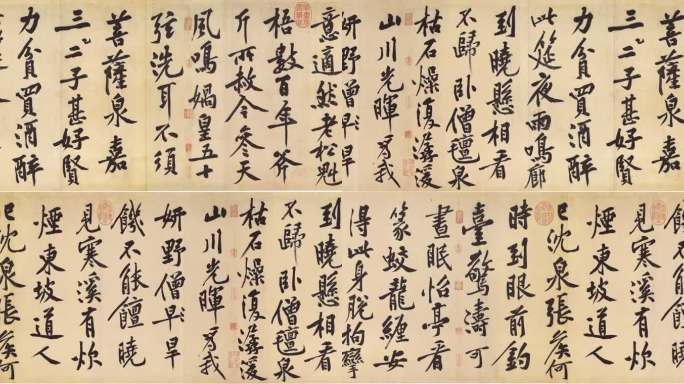 菩薩泉嘉
三二子甚好賢
力貧買酒醉
此筵夜雨鳴廊
到曉懸相看
不歸臥僧氈泉
枯石燥復潺湲
山川光暉為我
妍野僧早旱
意適然老松魁
梧數百年斧
斤所赦今參天
風鳴媧皇五十
弦洗耳不須
菩薩泉嘉
三二子甚好賢
力貧買酒醉
饑不能饘
見寒溪有炊
煙東坡道人
已沈泉張侯何
時到眼前釣
臺驚濤可
晝眠怡亭看
篆蛟龍纏安
得此身脫拘攣
到曉懸相看
不歸臥僧氈泉
枯石燥復潺湲
山川光暉為我
妍野僧早旱
饑不能饘曉
見寒溪有炊
煙東坡道人
已沈泉張侯何